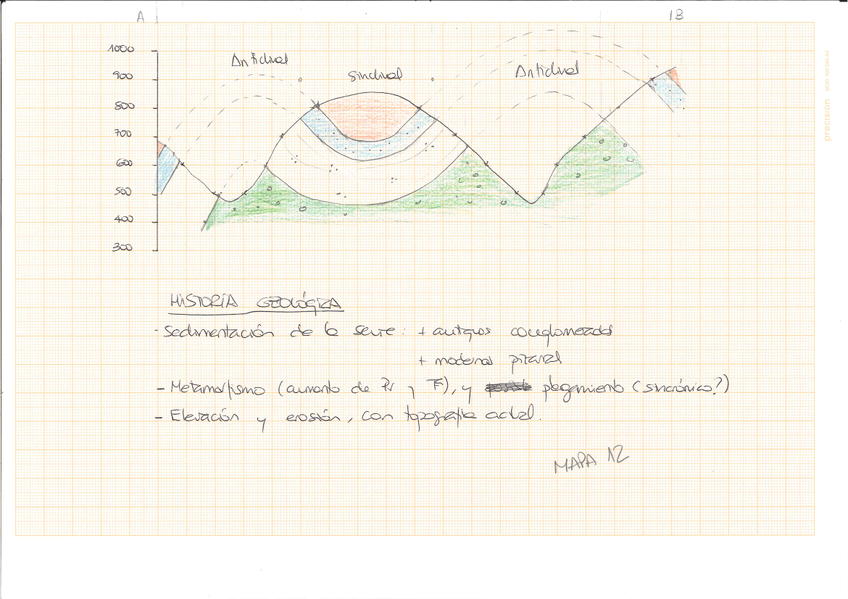 A B
1000
Anticlinal
900
Sinclinal
Anticlinal
800
700
600
500
400
300
HISTORIA GEOLÓGICA
- Sedimentación de la serie: + antiguos conglomerados
+ modernos pizarras
- Metamorfismo (aumento de Pr y Tª), y plegamiento (sincrónico?)
- Elevación y erosión, con topografía actual.
MAPA 12
precision